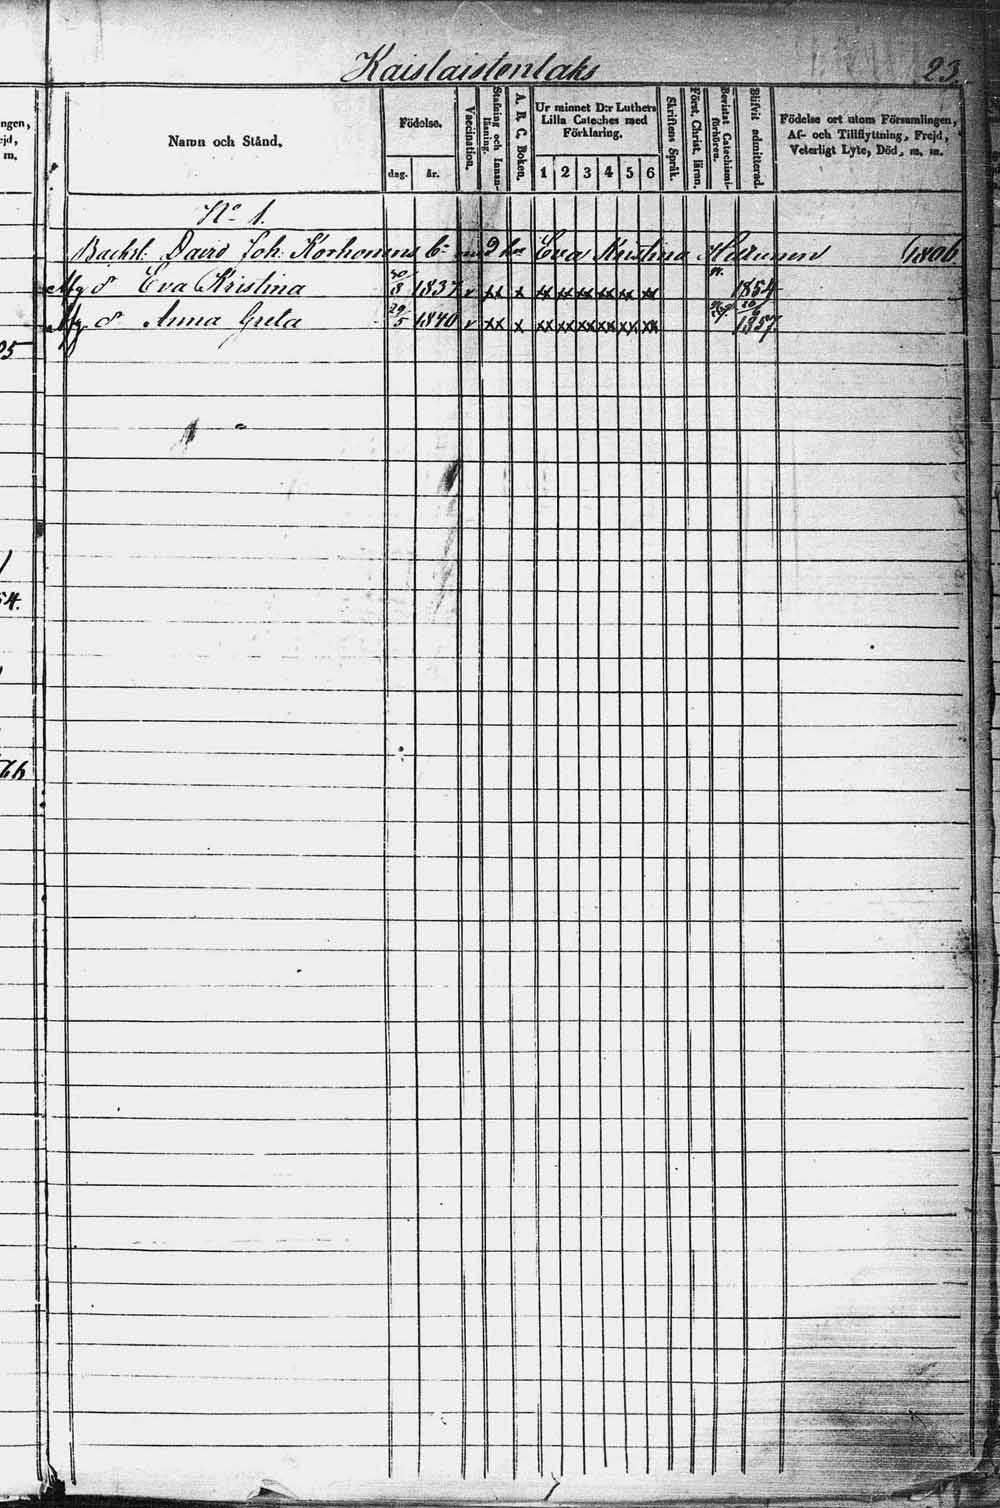 Kaislaistenlaks 23.
Namn och Stånd.
Födelse.
dag. år.
Vaccination.
Stafning och Innan-
läsning.
A. B. C. Boken.
Ur minnet D:r Luthers
Lilla Cateches med
Förklaring.
1 2 3 4 5 6
Skriftens Språk.
Först. Christ. läran.
Bevistat Catechismi-
förhören.
Blifvit admitterad.
Födelse ort utom Församlingen,
Af- och Tillflyttning, Frejd,
Veterligt Lyte, Död, m. m.
ngen,
ejd,
m.
No 1.
David Joh: Korhonens Eva Kristina 1806.
Eva Kristina 1837 v xx x xx xx xx xx xx xx 1854
Anna Greta 29/5 1840 v xx x xx xx xx xx xx xx 1857
05
54.
66